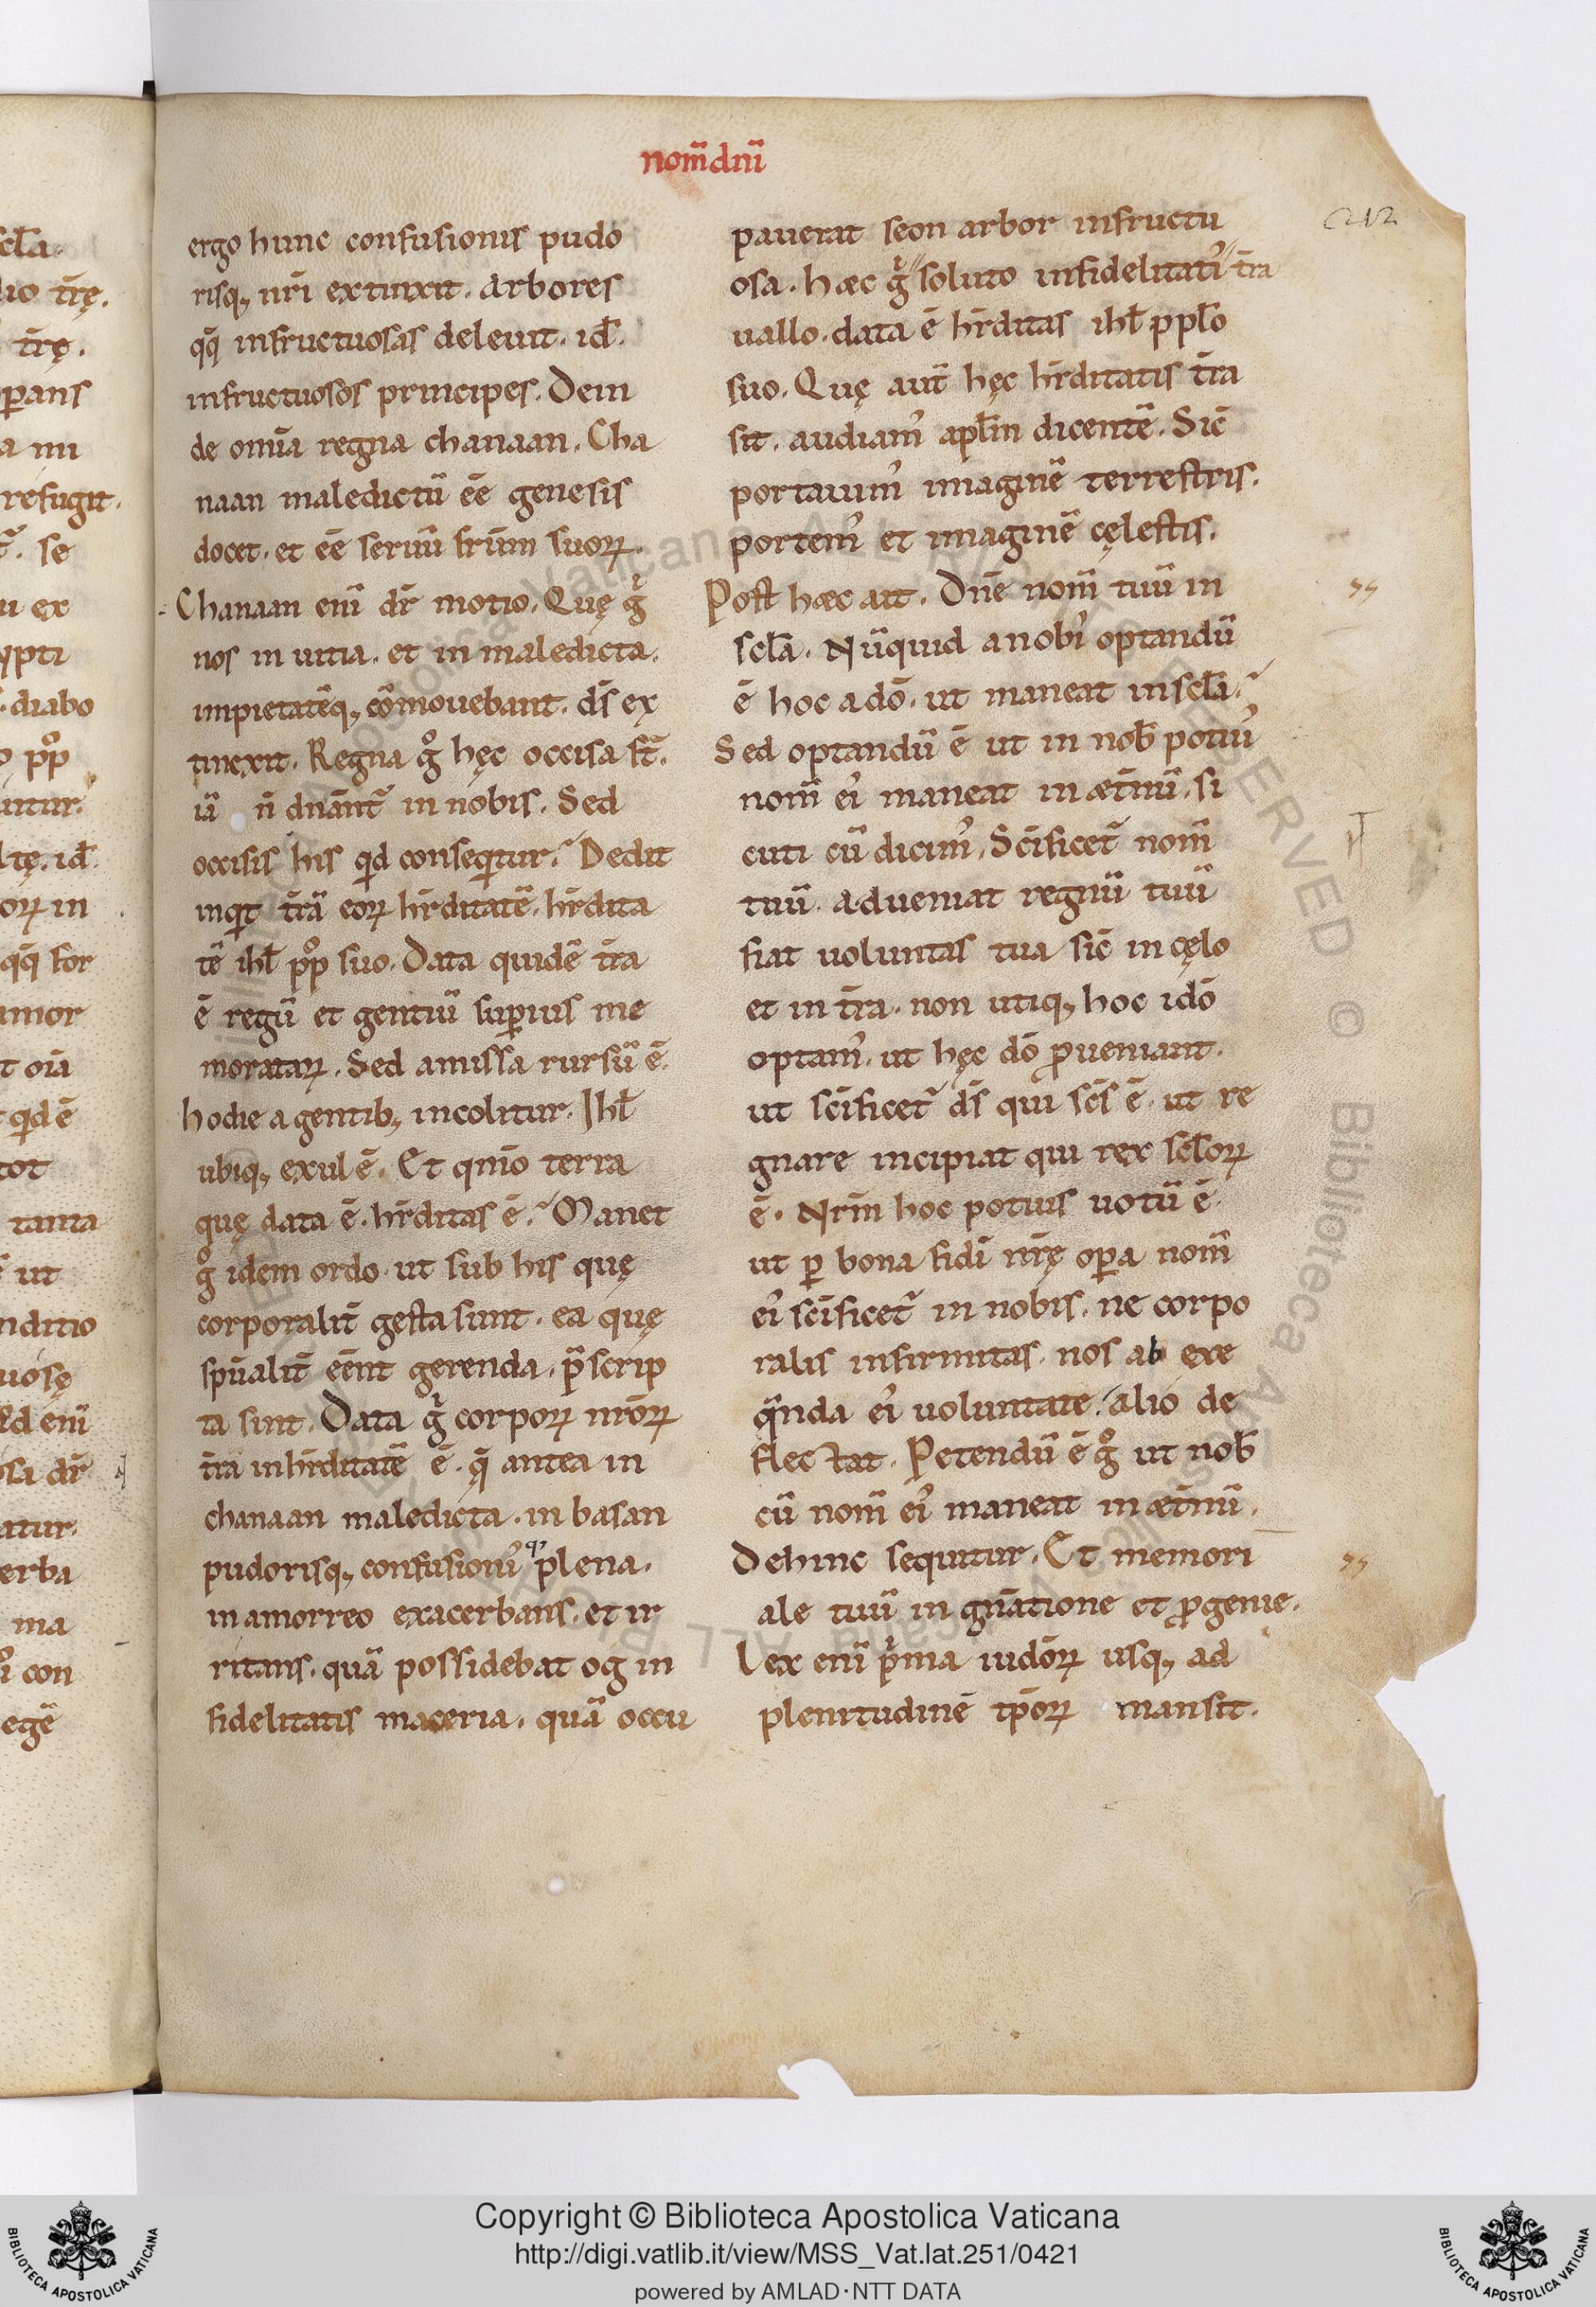 nom̄ dnī
212
ergo hunc confusionis pudo
risq; nr̄i extinxit. arbores
qq̄ infructuosas deleuit. id̄.
infructuosos principes. Dein
de om̄ia regna chanaan. Cha
naan maledictū eē genesis
docet. et eē seruū fr̄um suoꝝ.
Chanaan enī dr̄ motio. Quę gͥ
nos in uitia. et in maledicta.
impietatēq; cōmouebant. d̄s ex
tinexit. Regna gͦ hęc occisa st̄.
iā n̄ dn̄ant̄ in nobis. Sed
occisis his qd conseqtur? Dedit
inqt tr̄ā eoꝝ hr̄ditatē. hr̄dita
tē ihl̄ pp̊ suo. Data quidē tr̄a
ē regū et gentiū suꝑius me
morataꝝ. Sed amissa rursū ē.
hodie a gentib; incolitur. Ihl̄
ubiq; exul ē. Et qm̄o terra
quę data ē. hr̄ditas ē? Manet
gͦ idem ordo ut sub his quę
corporalit̄ gesta sunt. ea quę
sp̄ualit̄ eēnt gerenda. p̄scrip
ta sint. Data gͥ corpoꝝ nr̄oꝝ
tr̄a in hr̄ditatē ē. q̄ antea in
chanaan maledicta. in basan
pudorisq; confusioniꝰ plena.
in amorreo exacerbans. et ir
ritans. quā possidebat og in
fidelitatis maceria. quā occu
pauerat seon arbor infructu
osa. hæc gͥ soluto infidelitatiꝰ tr̄a
uallo. data ē hr̄ditas ihl̄ ppl̄o
suo. Quę aut̄ hęc hr̄ditatis tr̄a
sit. audiamꝰ apl̄m dicentē. Sic̄
portauimꝰ imaginē terrestris.
portemꝰ et imaginē cęlestis.
Post hæc ait. Dn̄e nom̄ tuū in
scl̄a. Nūquid a nobiꝰ optandū
ē hoc a dō. ut maneat in scl̄a?
Sed optandū ē ut in nob̄ potiuꝰ
nom̄ eiꝰ maneat in æt̄nū. si
cuti cū dicimꝰ. Sc̄ificet̄ nom̄
tuū. adueniat regnū tuū
fiat uoluntas tua sic̄ in cęlo
et in tr̄a. non utiq; hoc idō
optamꝰ. ut hęc dō ꝓueniant.
ut sc̄ificet̄ d̄s qui sc̄s ē. ut re
gnare incipiat qui rex scl̄oꝝ
ē. Nr̄m hoc potius uotū ē.
ut ꝑ bona fidī nr̄ę oꝑa nom̄
eiꝰ sc̄ificet̄ in nobis. ne corpo
ralis infirmitas nos ab exe
q̄nda eiꝰ uoluntate. alio de
flectat. Petendū ē gͦ ut nob̄
cū nom̄ eiꝰ maneat in æt̄nū.
Dehinc sequitur. Et memori
ale tuū in gn̄atione et ꝓgenie.
Lex enī pͥma iudōꝝ usq; ad
plenitudinē tp̄oꝝ mansit.
Copyright © Biblioteca Apostolica Vaticana
http://digi.vatlib.it/view/MSS_Vat.lat.251/0421
powered by AMLAD·NTT DATA